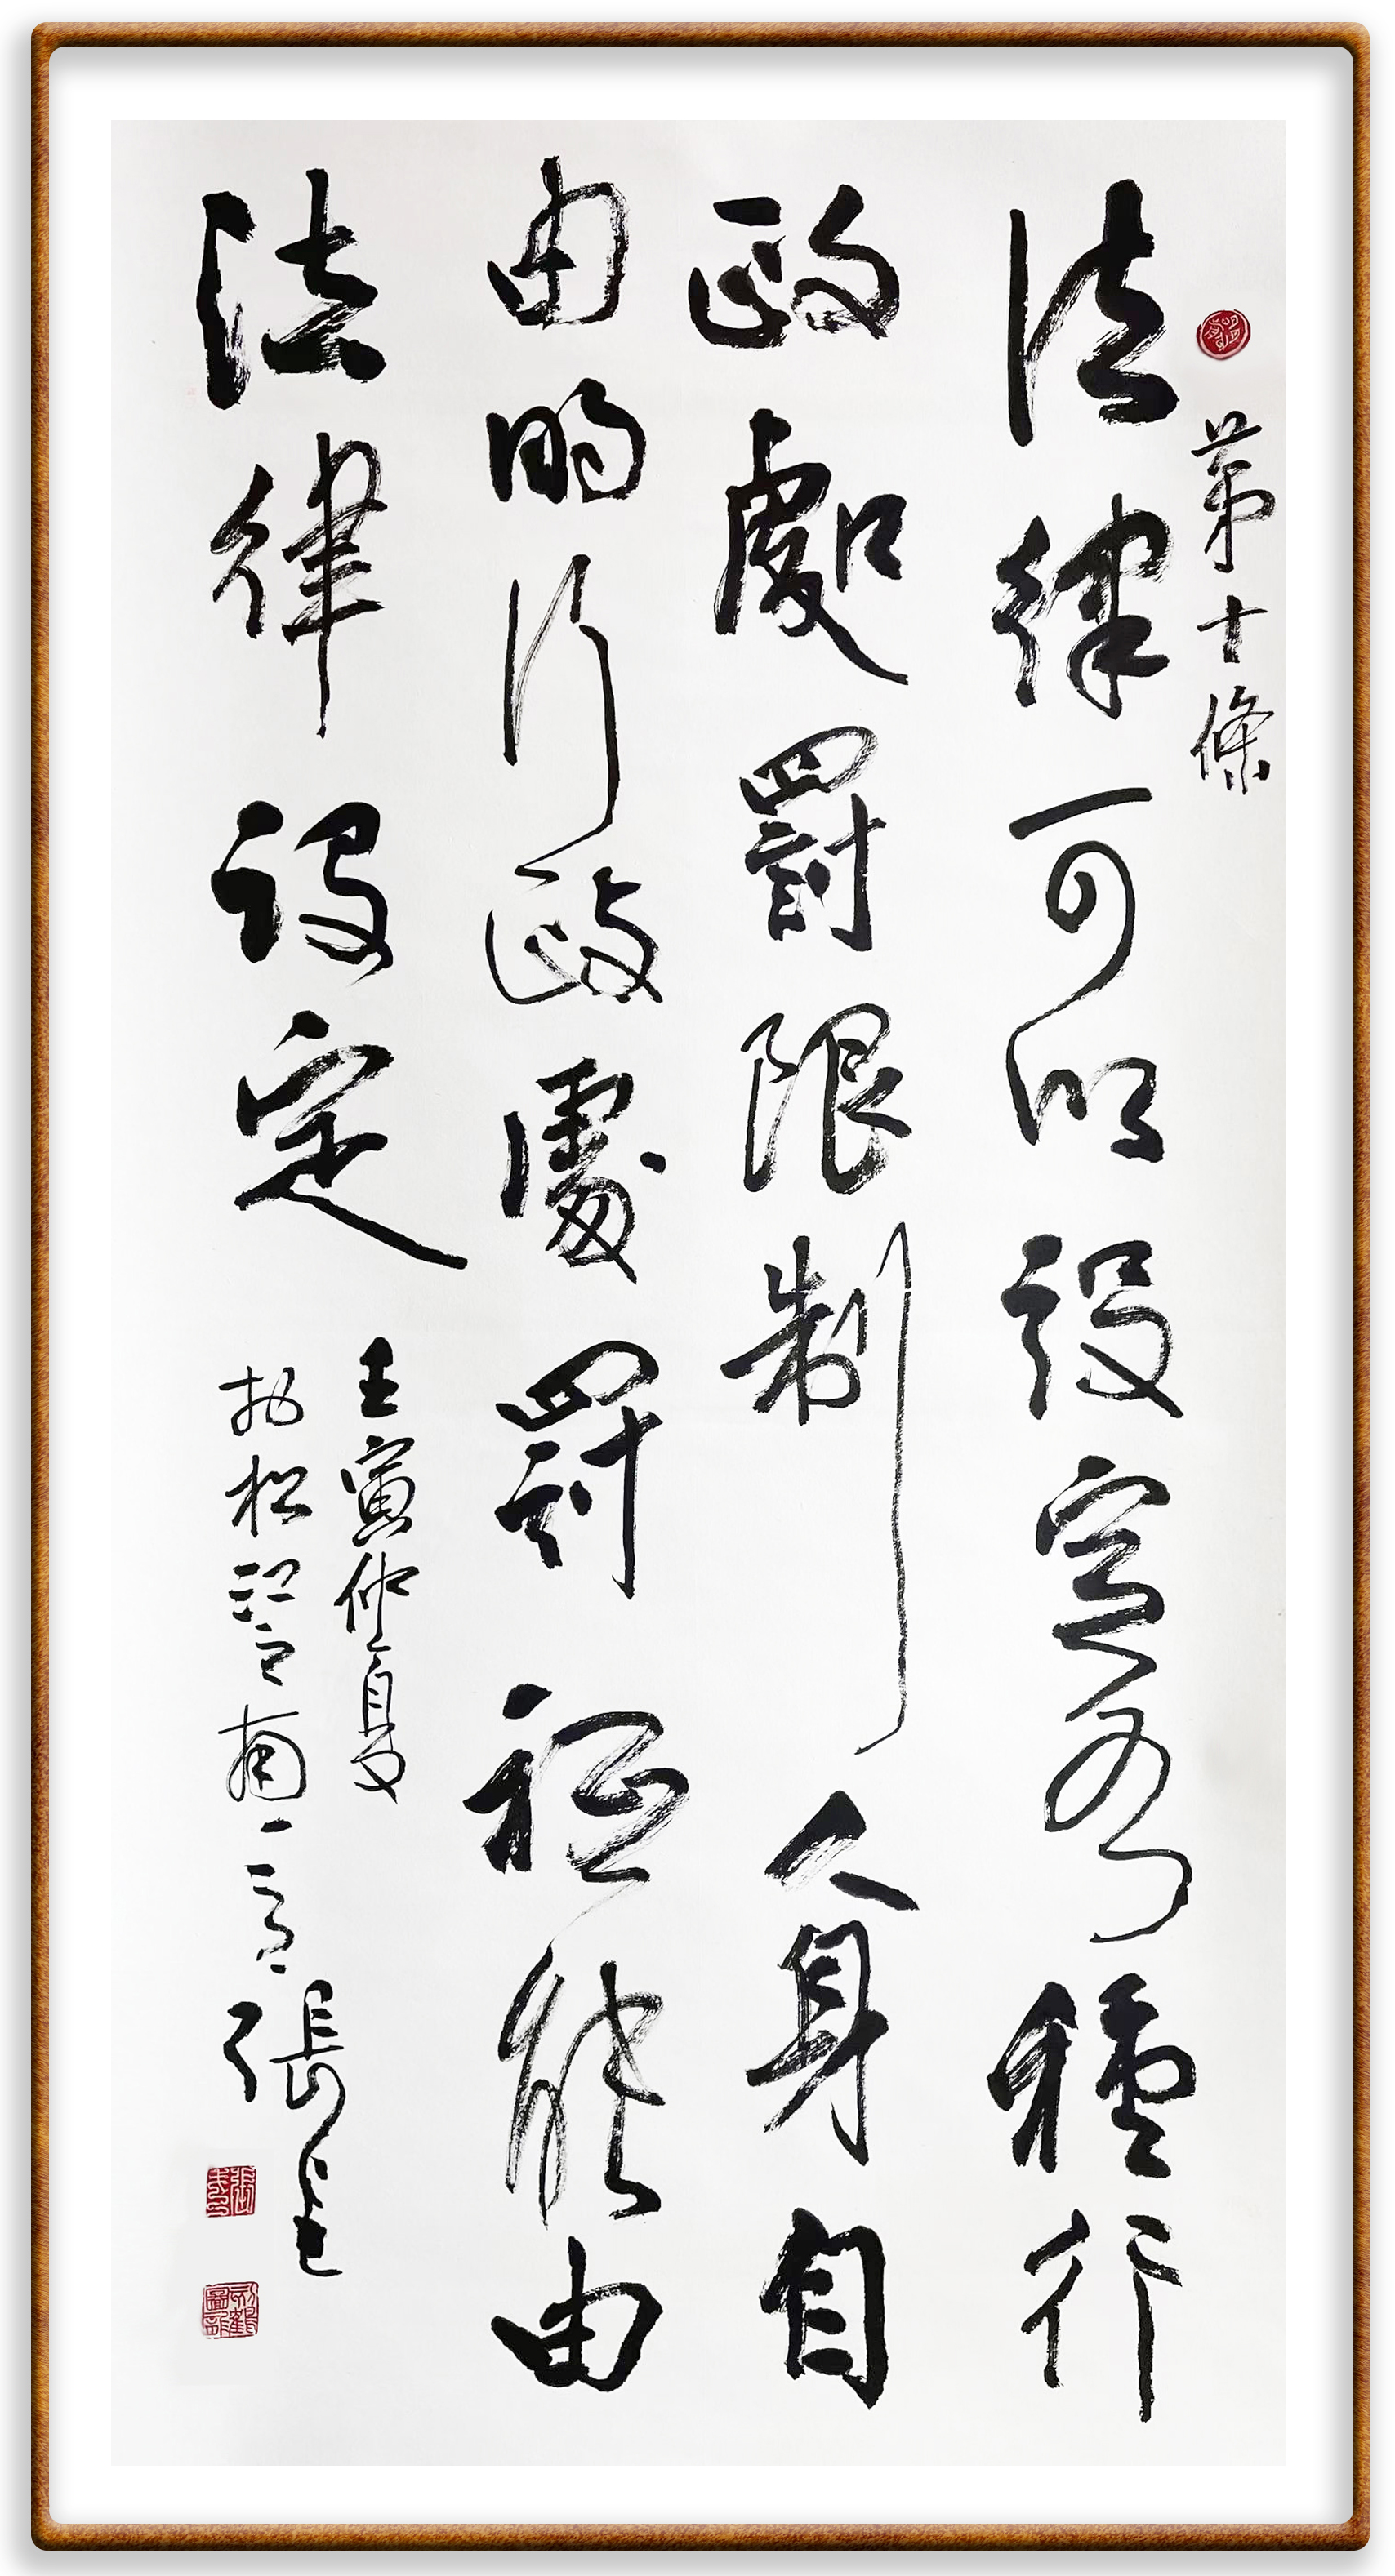 第十條
法律可以設定各種行
政處罰限制人身自
由的行政處罰祗能由
法律設定
壬寅仲夏
於松江之南
張